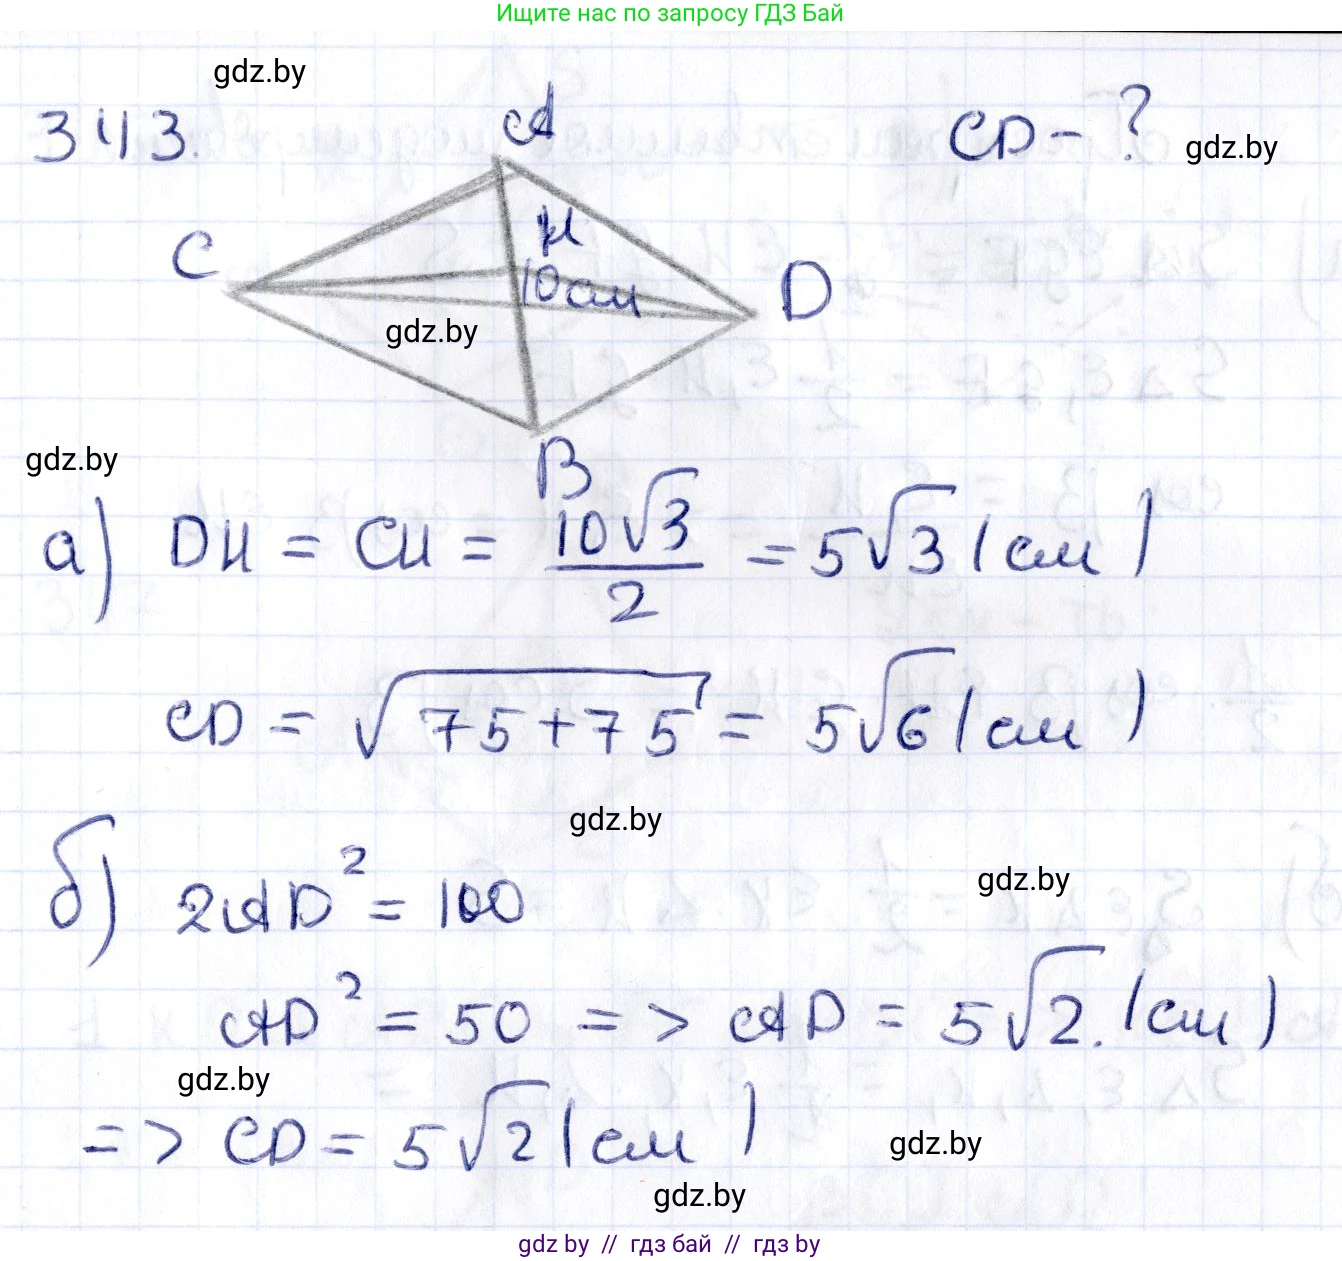 Ищите нас по запросу ГДЗ Бай
gdz.by
343.
A
CD - ?
gdz.by
C
H
10 см
D
gdz.by
gdz.by
B
а) DH = CH = 10√3/2 = 5√3 (см)
CD = √75+75 = 5√6 (см)
gdz.by
б) 2AD² = 100
gdz.by
AD² = 50 => AD = 5√2. (см)
gdz.by
=> CD = 5√2 (см)
gdz.by
gdz.by
gdz by // гдз бай // гдз by